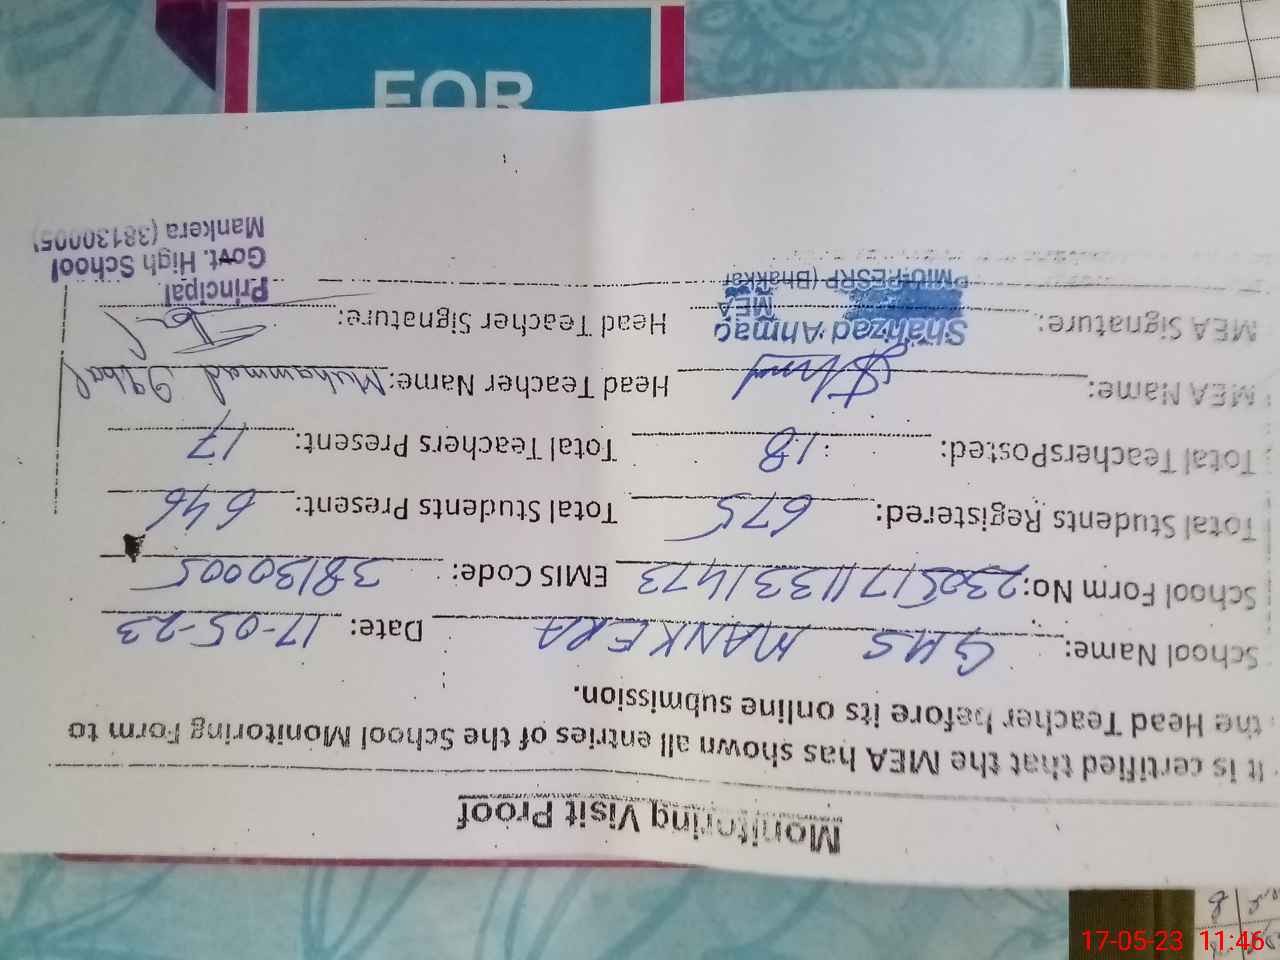 Monitoring Visit Proof
It is certified that the MEA has shown all entries of the School Monitoring Form to
the Head Teacher before its online submission.
School Name: GHS MANKERA Date: 17-05-23
School Form No: 23051711331473 EMIS Code: 38130005
Total Students Registered: 675 Total Students Present: 646
Total TeachersPosted: 18 Total Teachers Present: 17
MEA Name: Head Teacher Name: Muhammad Iqbal
MEA Signature: Head Teacher Signature:
Shahzad Ahmad
MEA
PMIU-PESRP (Bhakkar
Principal
Govt. High School
Mankera (38130005)
FOR
17-05-23 11:46